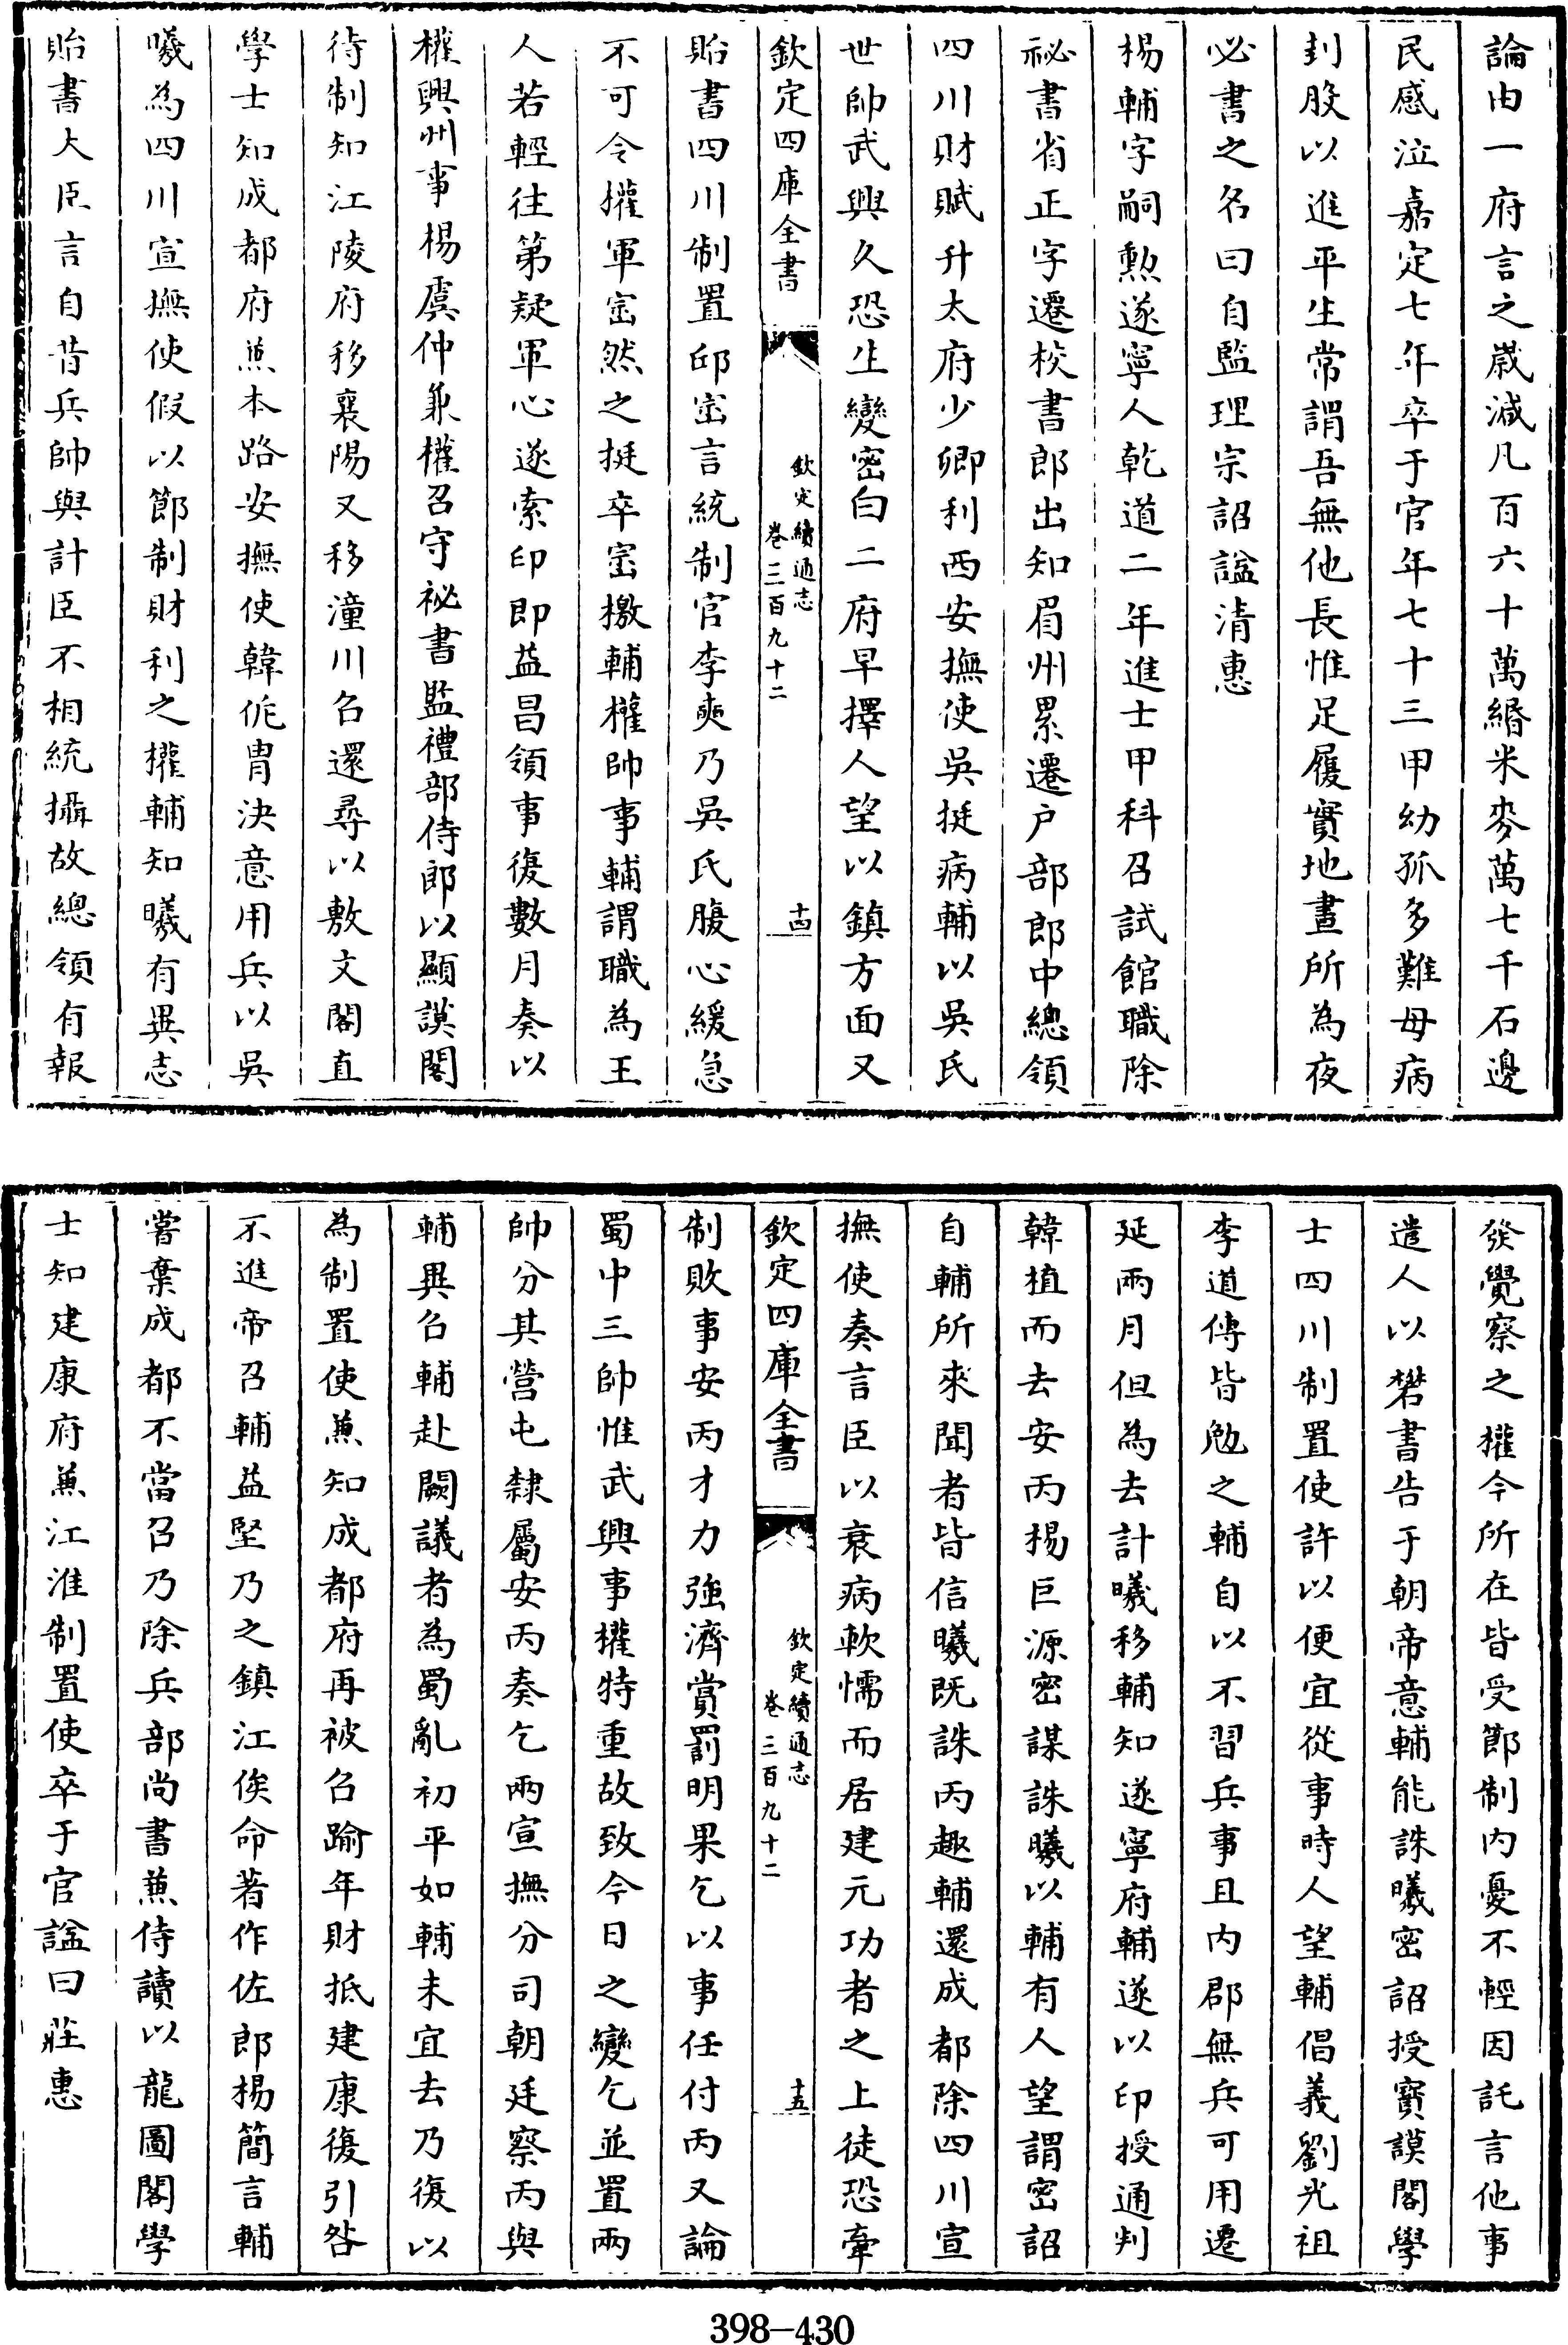 論由一府言之歲減凡百六十萬緡米麥萬七千石邊
民感泣嘉定七年卒于官年七十三甲幼孤多難母病
刲股以進平生常謂吾無他長惟足履實地晝所為夜
必書之名曰自監理宗詔諡清惠
楊輔字嗣勲遂寧人乾道二年進士甲科召試館職除
祕書省正字遷校書郎出知眉州累遷户部郎中總領
四川財賦升太府少卿利西安撫使吳挺病輔以吳氏
世帥武興久恐生變密白二府早擇人望以鎮方面又
欽定四庫全書
欽定續通志
卷三百九十二
十四
貽書四川制置邱崈言統制官李奭乃吳氏腹心緩急
不可令權軍崈然之挺卒崈檄輔權帥事輔謂職為王
人若輕往第疑軍心遂索印即益昌領事復數月奏以
權興州事楊虞仲兼權召守祕書監禮部侍郎以顯謨閣
待制知江陵府移襄陽又移潼川召還尋以敷文閣直
學士知成都府兼本路安撫使韓侂胄決意用兵以吳
曦為四川宣撫使假以節制財利之權輔知曦有異志
貽書大臣言自昔兵帥與計臣不相統攝故總領有報
發覺察之權今所在皆受節制内憂不輕因託言他事
遣人以礬書告于朝帝意輔能誅曦密詔授寳謨閣學
士四川制置使許以便宜從事時人望輔倡義劉光祖
李道傳皆勉之輔自以不習兵事且内郡無兵可用遷
延兩月但為去計曦移輔知遂寧府輔遂以印授通判
韓植而去安丙楊巨源密謀誅曦以輔有人望謂密詔
自輔所來聞者皆信曦既誅丙趣輔還成都除四川宣
撫使奏言臣以衰病軟懦而居建元功者之上徒恐牽
欽定四庫全書
欽定續通志
卷三百九十二
十五
制敗事安丙才力強濟賞罰明果乞以事任付丙又論
蜀中三帥惟武興事權特重故致今日之變乞並置兩
帥分其營屯隸屬安丙奏乞兩宣撫分司朝廷察丙與
輔異召輔赴闕議者為蜀亂初平如輔未宜去乃復以
為制置使兼知成都府再被召踰年財抵建康復引咎
不進帝召輔益堅乃之鎮江俟命著作佐郎楊簡言輔
嘗棄成都不當召乃除兵部尚書兼侍讀以龍圖閣學
士知建康府兼江淮制置使卒于官諡曰莊惠
398-430